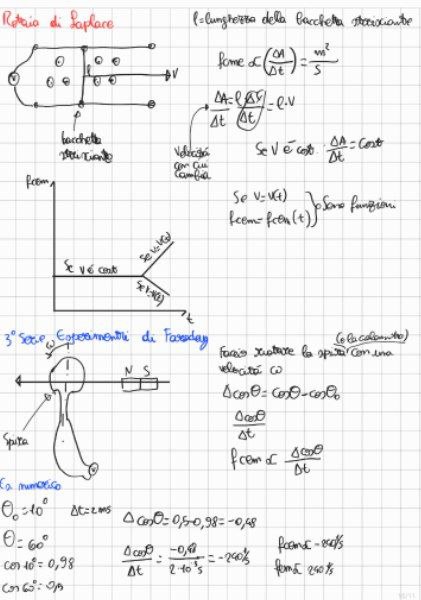 Rotaia di Laplace
l=lunghezza della bacchetta strisciante
V
l
bacchetta
strisciante
fcme ∝ (ΔA/Δt) = m²/s
ΔA/Δt = l·ΔV/Δt = l·V
velocità
con cui
cambia
Se V è cost. ΔA/Δt = cost
Se V=V(t)
fcem=fcem(t) } Sono funzioni
fcem
Se V=V(t)
Se V è cost
Se V=V(t)
t
3° Serie Esperimenti di Faraday
ω
N S
Spira
(o la calamita)
Faccio ruotare la spira con una
velocità ω
Δcosθ = cosθ - cosθ₀
Δcosθ/Δt
fcem ∝ Δcosθ/Δt
Es numerico
θ₀=10° Δt=2ms
θ=60°
cos10°=0,98
cos60°=0,5
Δcosθ=0,5-0,98=-0,48
Δcosθ/Δt = -0,48/2·10⁻³s = -240 1/s
fcem ∝ -240 1/s
fcem ∝ 240 1/s